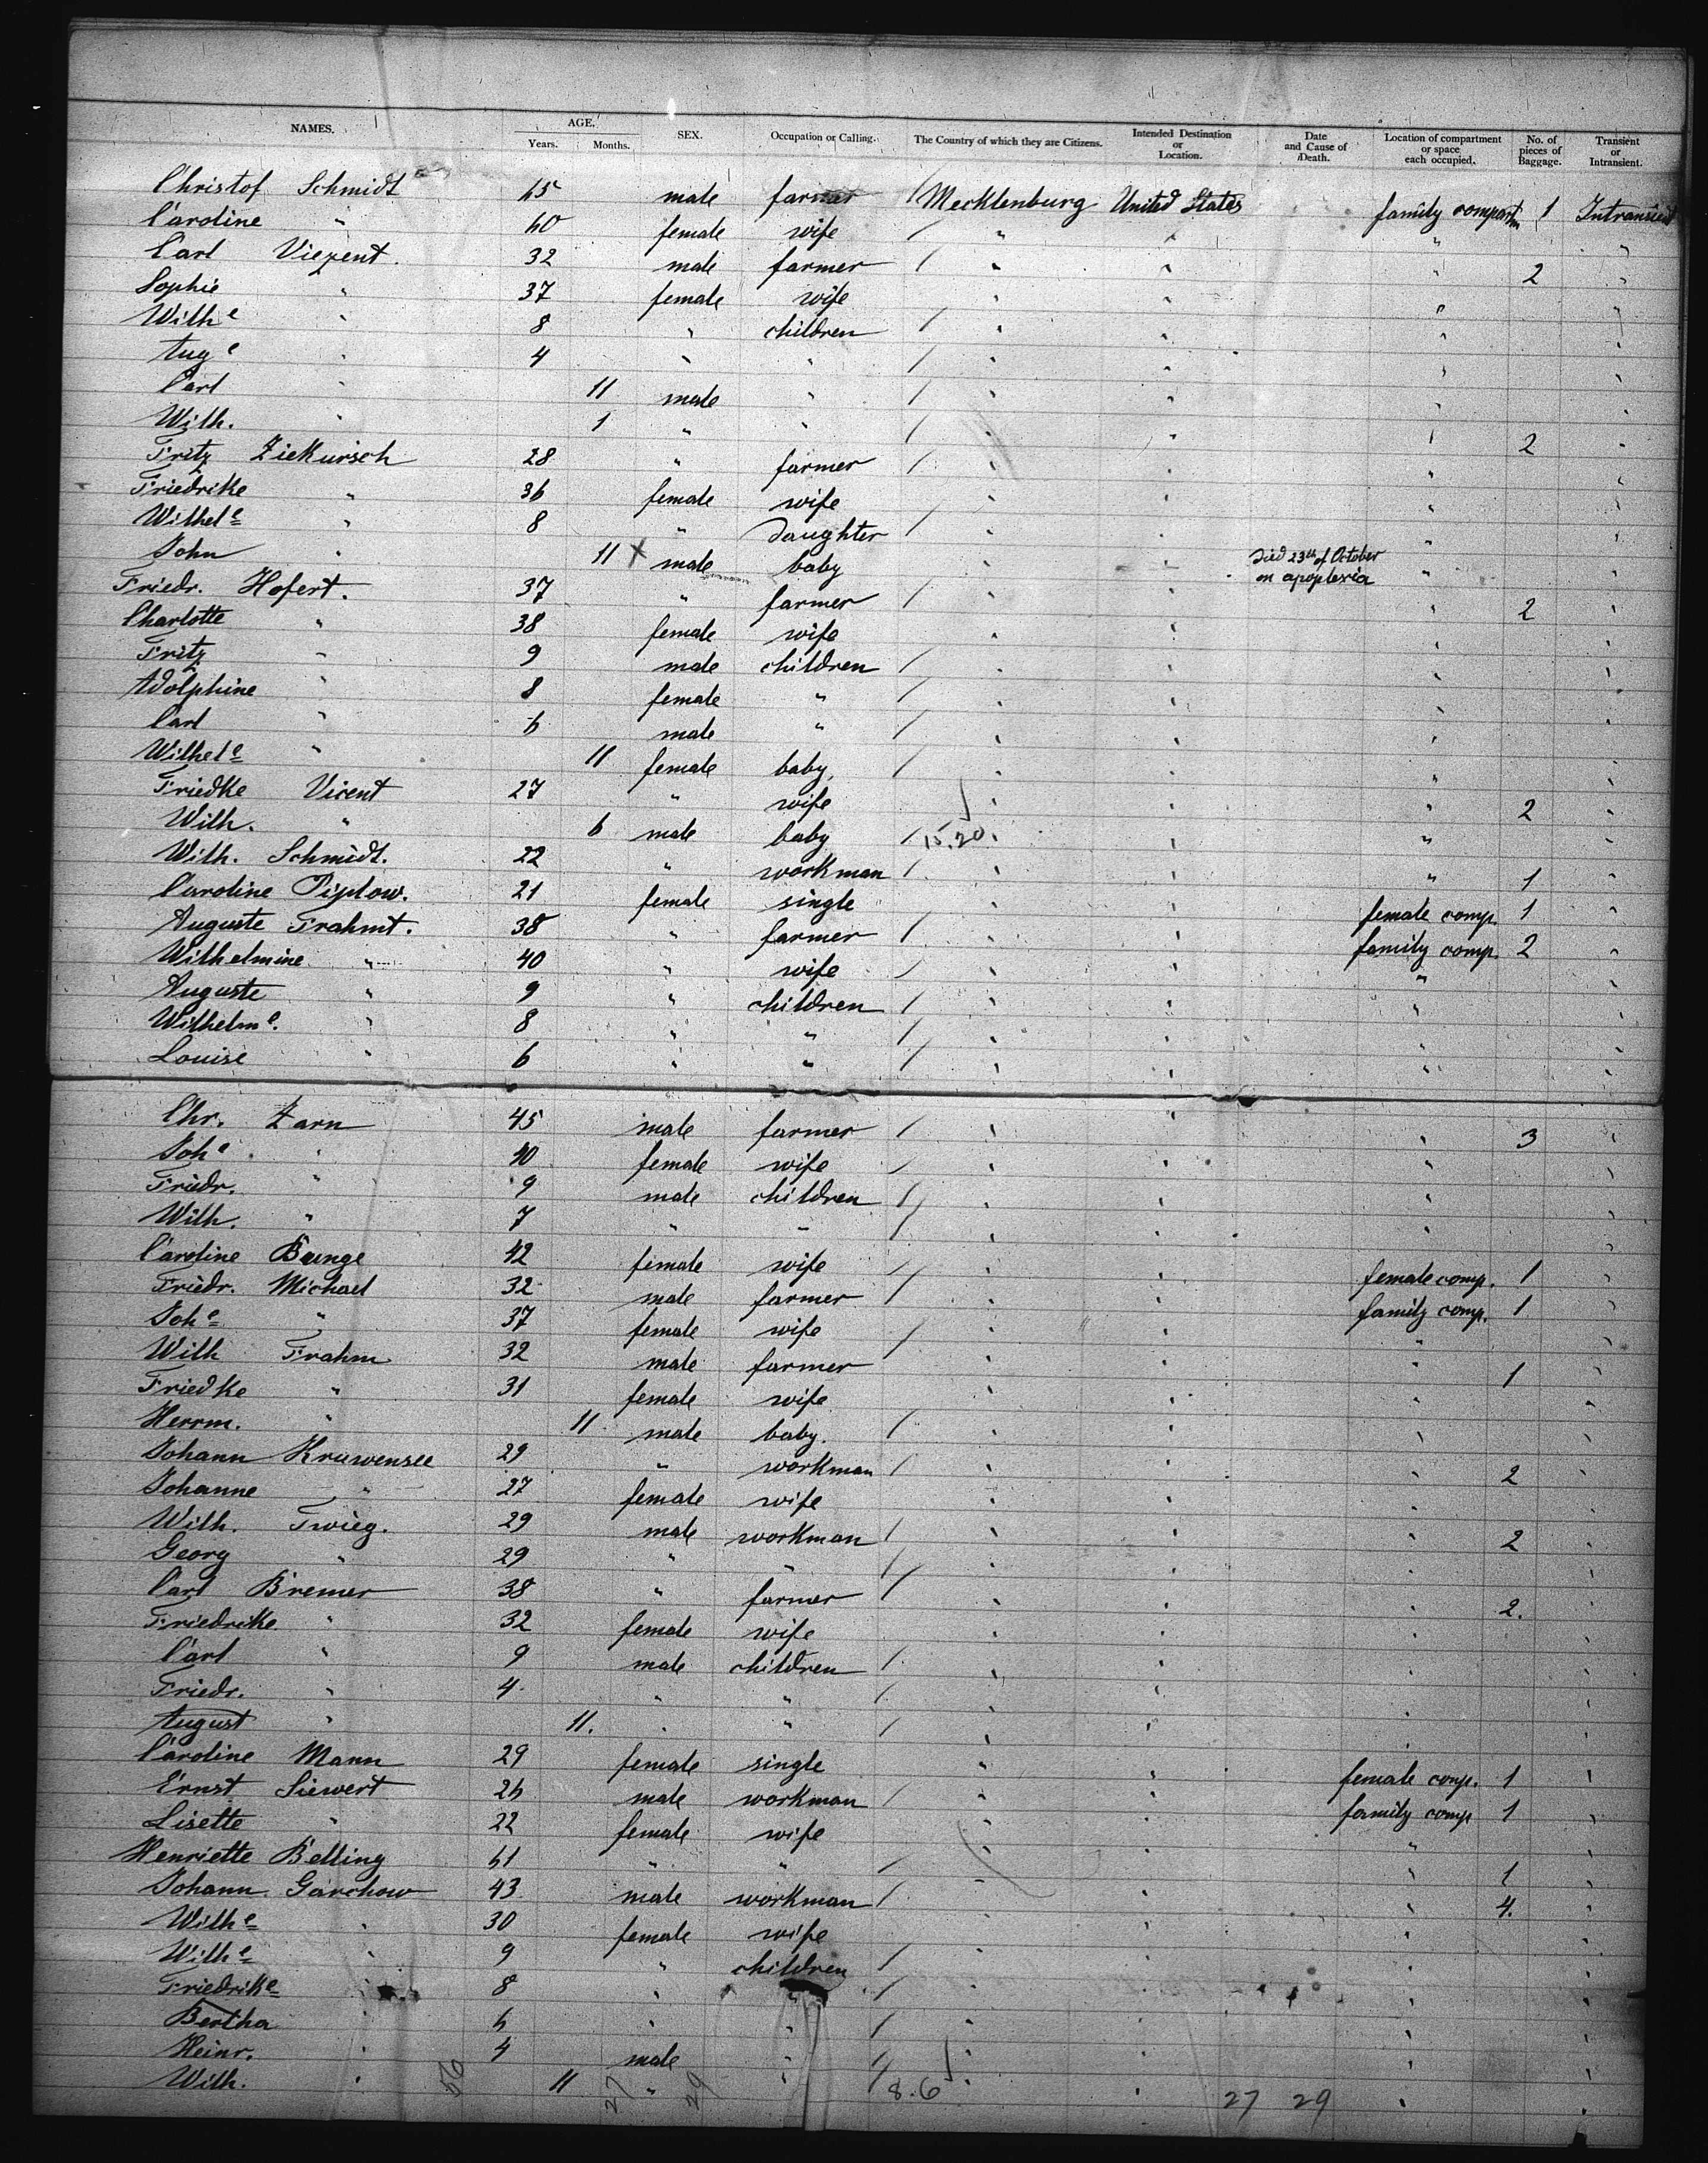 NAMES. AGE. Years. Months. SEX. Occupation or Calling. The Country of which they are Citizens. Intended Destination or Location. Date and Cause of Death. Location of compartment or space each occupied. No. of pieces of Baggage. Transient or Intransient.
Christof Schmidt 65 male farmer / Mecklenburg United States family compartm 1 Intransient
Caroline " 60 female wife / " " "
Carl Viezent. 32 male farmer / " " " 2 "
Sophie " 37 female wife " " " "
Wilhe " 8 " children / " " " "
Auge " 4 " " / " " " "
Carl " 11 male " / " " " "
Wilh. " 1 " " / " " " 2 "
Fritz Ziekursch 28 " farmer / " " " "
Friedrike " 36 female wife " " " "
Wilhele " 8 " Daughter / " " " "
John " 11 X male baby " " died 23th of October on apoplexia " "
Friedr. Hofert. 37 " farmer / " " " 2 "
Charlotte " 38 female wife " " " "
Fritz " 9 male children / " " " "
Adolphine " 8 female " / " " " "
Carl " 6 male " / " " " "
Wilhele " 11 female baby / " " " "
Friedke Vicent 27 " wife " " " 2 "
Wilh. " 6 male baby / 15.20. " " "
Wilh. Schmidt. 22 " workman / " " " 1 "
Caroline Piplow. 21 female single " " female comp. 1 "
Auguste Frahmt. 38 " farmer / " " family comp. 2 "
Wilhelmine " 40 " wife / " " " "
Auguste " 9 " children / " " " "
Wilhelme. " 8 " " / " " " "
Louise " 6 " " / " " " "
Chr. Zarn 45 male farmer / " " " 3 "
Johe " 40 female wife / " " " "
Friedr. " 9 male children / " " " "
Wilh. " 7 " " / " " " "
Caroline Bunge 42 female wife / " " female comp. 1 "
Friedr. Michael 32 male farmer / " " family comp. 1 "
Johe " 37 female wife / " " " "
Wilh Frahm 32 male farmer " " " 1 "
Friedke " 31 female wife " " " "
Herrm. " 11 male baby. / " " " "
Johann Kruwensee 29 " workman / " " " 2 "
Johanne " 27 female wife " " " "
Wilh. Twieg. 29 male workman / " " " 2 "
Georg " 29 " " / " " " "
Carl Bremer 38 " farmer / " " " 2. "
Friedrike " 32 female wife " " " "
Carl " 9 male children / " " " "
Friedr. " 4 " " / " " " "
August " 11. " " / " " " "
Caroline Mann 29 female single " " female comp. 1 "
Ernst Siewert 26 male workman / " " family comp 1 "
Lisette " 22 female wife " " " "
Henriette Belling 61 " " / " " " 1 "
Johann Garchow 43 male workman / " " " 4. "
Wilhe " 30 female wife " " " "
Wilhe " 9 " children / " " " "
Friedrike " 8 " " / " " "
Bertha " 6 " " / " " " "
Heinr. " 4 male " / " " " "
Wilh. " 11 " " / " " " "
56 27 29 8.6 27 29